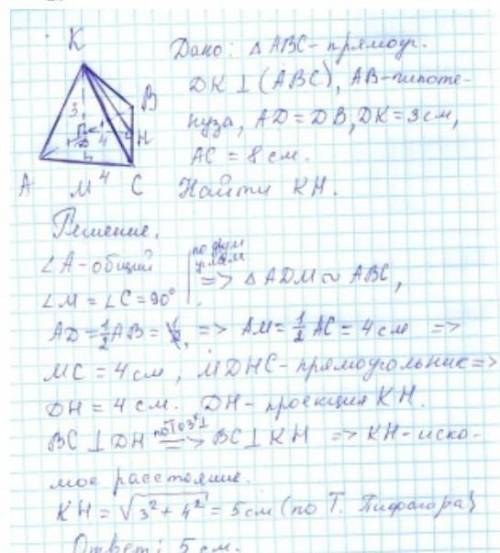 K
Дано: △ABC - прямоуг.
DK ⊥ (ABC), AB - гипоте-
нуза, AD = DB, DK = 3 см,
AC = 8 см.
Найти KH.
3
B
4
H
D
A M 4 C
Решение.
∠A - общий
∠M = ∠C = 90° | по двум углам => △ADM ~ ABC,
AD = 1/2 AB = , => AM = 1/2 AC = 4 см =>
MC = 4 см, MDHC - прямоугольник =>
DH = 4 см. DH - проекция KH.
BC ⊥ DH по ТОЗ⊥ => BC ⊥ KH => KH - иско-
мое расстояние.
KH = √3² + 4² = 5 см (по Т. Пифагора)
Ответ: 5 см.